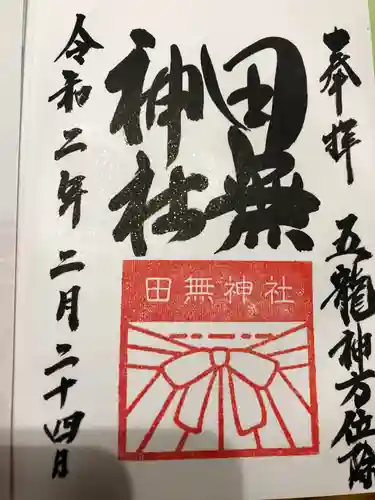 奉拝 五龍神方位除
田無
神社
田無神社
令和二年二月二十四日